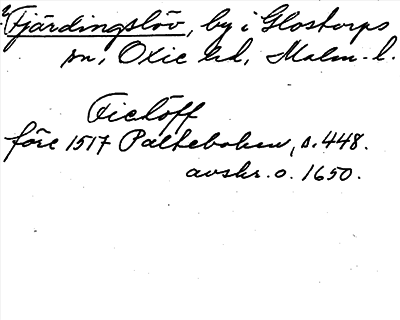 Fjärdingslöv, by i Glostorps
sn, Oxie hd, Malm. l.
Fictöff
före 1517 Palteboken, s. 448.
avskr. o. 1650.